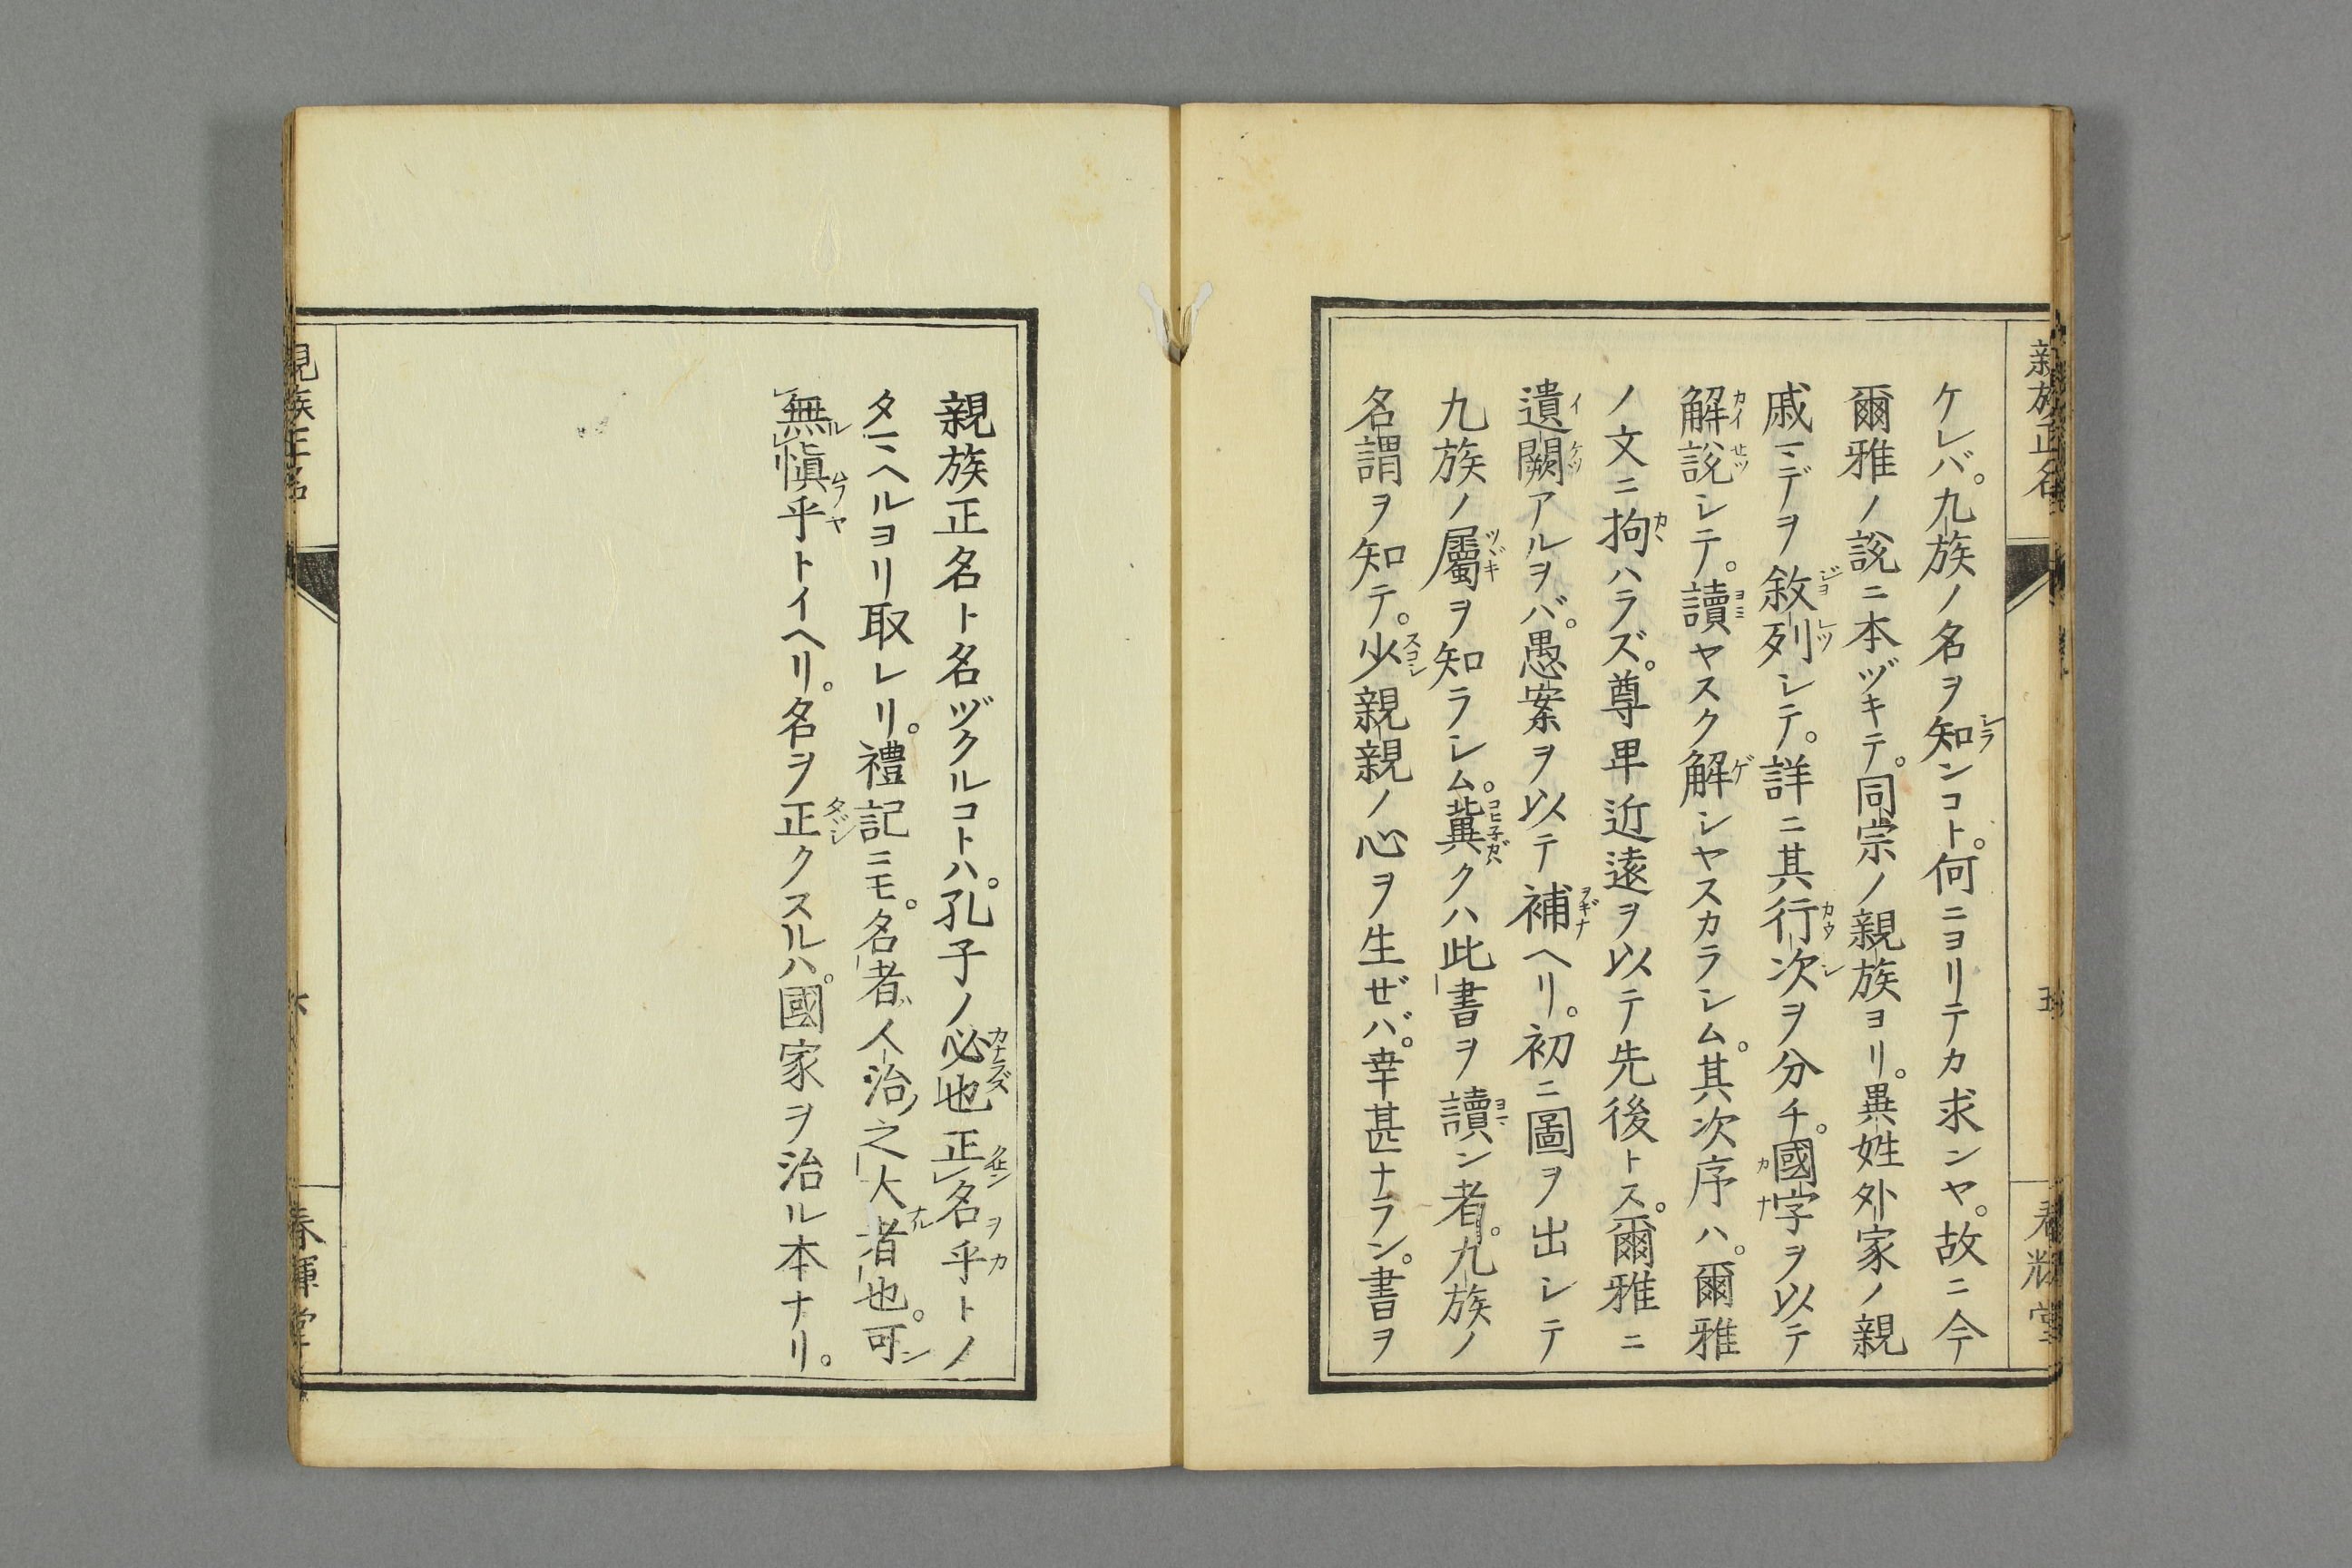 親族正名
五
春暉堂
ケレバ。九族ノ名ヲ知ンコト。何ニヨリテカ求ンヤ。故ニ今
爾雅ノ説ニ本ヅキテ。同宗ノ親族ヨリ。異姓外家ノ親
戚ミデヲ敘列シテ。詳ニ其行次ヲ分チ。國字ヲ以テ
解説シテ。讀ヤスク解シヤスカラシム。其次序ハ。爾雅
ノ文ニ拘ハラズ。尊卑近遠ヲ以テ先後トス。爾雅ニ
遺闕アルヲバ。愚案ヲ以テ補ヘリ。初ニ圖ヲ出シテ
九族ノ屬ヲ知ラシム。冀クハ此書ヲ讀ン者。九族ノ
名謂ヲ知テ。少親親ノ心ヲ生ゼバ。幸甚ナラン。書ヲ
親族正名ト名ヅクルコトハ。孔子ノ必也正名乎トノ
タミヘルヨリ取レリ。禮記ニモ。名者人治之大者也。可
無慎乎トイヘリ。名ヲ正クスルハ。國家ヲ治ル本ナリ。
親族正名
六
春暉堂